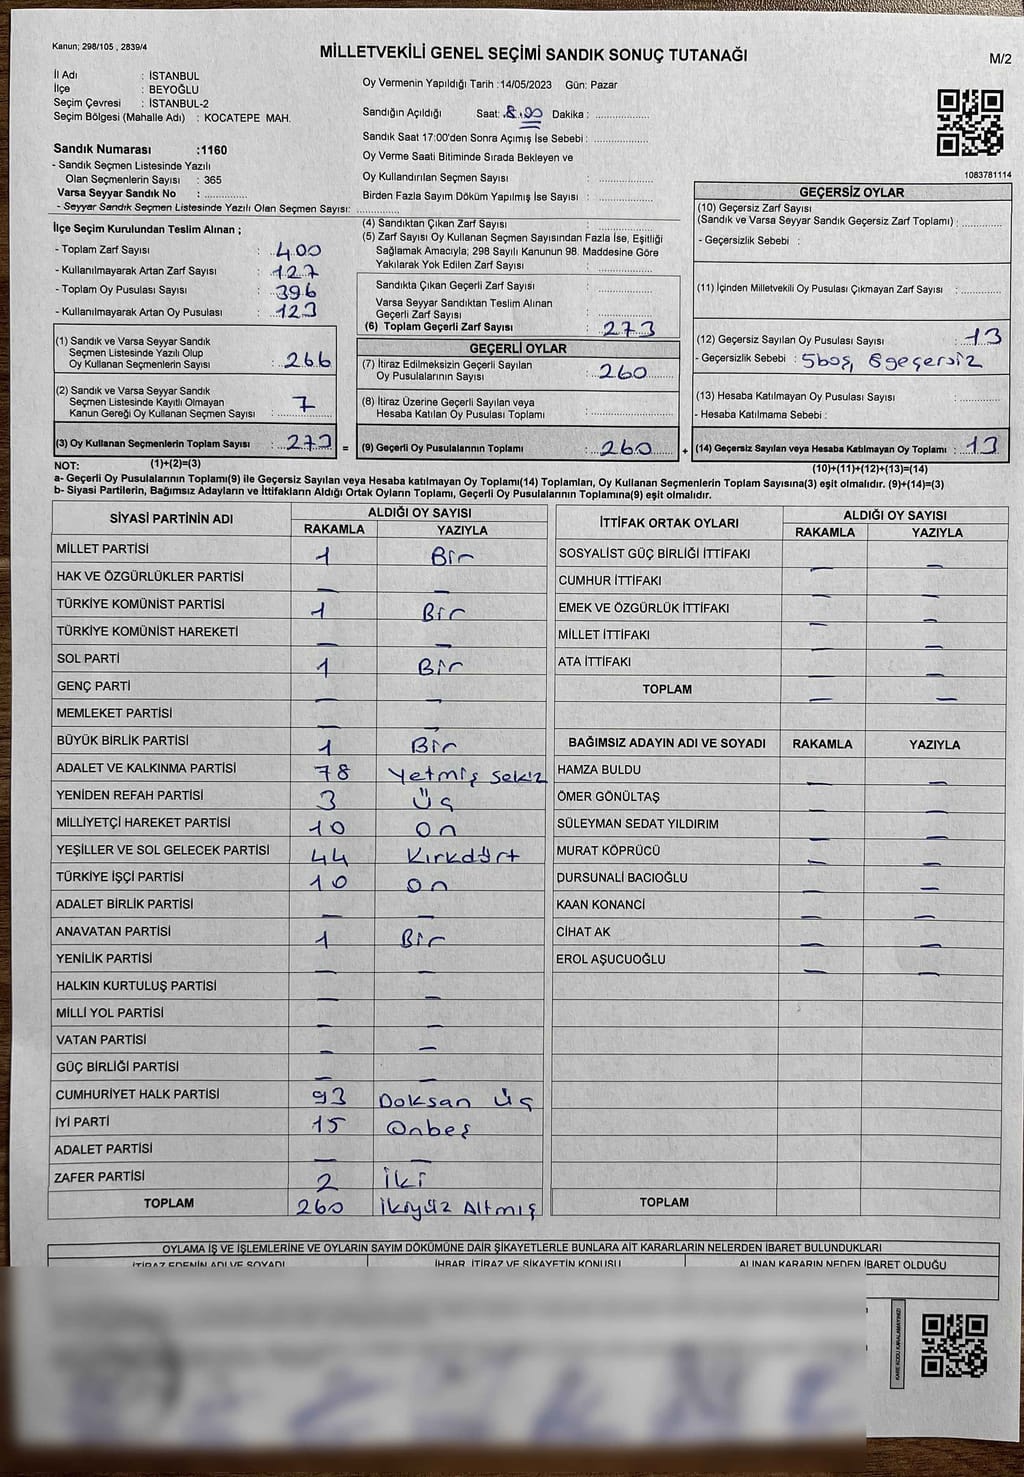 Kanun; 298/105 , 2839/4
MİLLETVEKİLİ GENEL SEÇİMİ SANDIK SONUÇ TUTANAĞI
M/2
İl Adı : İSTANBUL
İlçe : BEYOĞLU
Seçim Çevresi : İSTANBUL-2
Seçim Bölgesi (Mahalle Adı) : KOCATEPE MAH.
Sandık Numarası :1160
- Sandık Seçmen Listesinde Yazılı
Olan Seçmenlerin Sayısı : 365
Varsa Seyyar Sandık No : ............
- Seyyar Sandık Seçmen Listesinde Yazılı Olan Seçmen Sayısı: ............
Oy Vermenin Yapıldığı Tarih :14/05/2023 Gün: Pazar
Sandığın Açıldığı Saat: 8.00 Dakika : ............
Sandık Saat 17:00'den Sonra Açımış İse Sebebi : ............
Oy Verme Saati Bitiminde Sırada Bekleyen ve
Oy Kullandırılan Seçmen Sayısı : ............
Birden Fazla Sayım Döküm Yapılmış İse Sayısı : ............
1083781114
İlçe Seçim Kurulundan Teslim Alınan ;
- Toplam Zarf Sayısı : 400
- Kullanılmayarak Artan Zarf Sayısı : 127
- Toplam Oy Pusulası Sayısı : 396
- Kullanılmayarak Artan Oy Pusulası : 123
(1) Sandık ve Varsa Seyyar Sandık
Seçmen Listesinde Yazılı Olup
Oy Kullanan Seçmenlerin Sayısı : 266
(2) Sandık ve Varsa Seyyar Sandık
Seçmen Listesinde Kayıtlı Olmayan
Kanun Gereği Oy Kullanan Seçmen Sayısı : 7
(3) Oy Kullanan Seçmenlerin Toplam Sayısı : 273 =
(1)+(2)=(3)
(4) Sandıktan Çıkan Zarf Sayısı : ............
(5) Zarf Sayısı Oy Kullanan Seçmen Sayısından Fazla İse, Eşitliği
Sağlamak Amacıyla; 298 Sayılı Kanunun 98. Maddesine Göre
Yakılarak Yok Edilen Zarf Sayısı : ............
Sandıkta Çıkan Geçerli Zarf Sayısı : ............
Varsa Seyyar Sandıktan Teslim Alınan
Geçerli Zarf Sayısı : ............
(6) Toplam Geçerli Zarf Sayısı : 273
GEÇERLİ OYLAR
(7) İtiraz Edilmeksizin Geçerli Sayılan
Oy Pusulalarının Sayısı : 260
(8) İtiraz Üzerine Geçerli Sayılan veya
Hesaba Katılan Oy Pusulası Toplamı : ............
(9) Geçerli Oy Pusulalarının Toplamı : 260 +
GEÇERSİZ OYLAR
(10) Geçersiz Zarf Sayısı
(Sandık ve Varsa Seyyar Sandık Geçersiz Zarf Toplamı) : ............
- Geçersizlik Sebebi :
(11) İçinden Milletvekili Oy Pusulası Çıkmayan Zarf Sayısı : ............
(12) Geçersiz Sayılan Oy Pusulası Sayısı : 13
- Geçersizlik Sebebi : 5boş, 8geçersiz
(13) Hesaba Katılmayan Oy Pusulası Sayısı : ............
- Hesaba Katılmama Sebebi :
(14) Geçersiz Sayılan veya Hesaba Katılmayan Oy Toplamı : 13
(10)+(11)+(12)+(13)=(14)
NOT:
a- Geçerli Oy Pusulalarının Toplamı(9) ile Geçersiz Sayılan veya Hesaba katılmayan Oy Toplamı(14) Toplamları, Oy Kullanan Seçmenlerin Toplam Sayısına(3) eşit olmalıdır. (9)+(14)=(3)
b- Siyasi Partilerin, Bağımsız Adayların ve İttifakların Aldığı Ortak Oyların Toplamı, Geçerli Oy Pusulalarının Toplamına(9) eşit olmalıdır.
SİYASİ PARTİNİN ADI ALDIĞI OY SAYISI
RAKAMLA YAZIYLA
MİLLET PARTİSİ 1 Bir
HAK VE ÖZGÜRLÜKLER PARTİSİ — —
TÜRKİYE KOMÜNİST PARTİSİ 1 Bir
TÜRKİYE KOMÜNİST HAREKETİ — —
SOL PARTİ 1 Bir
GENÇ PARTİ — —
MEMLEKET PARTİSİ — —
BÜYÜK BİRLİK PARTİSİ 1 Bir
ADALET VE KALKINMA PARTİSİ 78 Yetmiş Sekiz
YENİDEN REFAH PARTİSİ 3 Üç
MİLLİYETÇİ HAREKET PARTİSİ 10 On
YEŞİLLER VE SOL GELECEK PARTİSİ 44 Kırkdört
TÜRKİYE İŞÇİ PARTİSİ 10 On
ADALET BİRLİK PARTİSİ — —
ANAVATAN PARTİSİ 1 Bir
YENİLİK PARTİSİ — —
HALKIN KURTULUŞ PARTİSİ — —
MİLLİ YOL PARTİSİ — —
VATAN PARTİSİ — —
GÜÇ BİRLİĞİ PARTİSİ — —
CUMHURİYET HALK PARTİSİ 93 Doksan Üç
İYİ PARTİ 15 Onbeş
ADALET PARTİSİ — —
ZAFER PARTİSİ 2 İki
TOPLAM 260 İkiyüz Altmış
İTTİFAK ORTAK OYLARI ALDIĞI OY SAYISI
RAKAMLA YAZIYLA
SOSYALİST GÜÇ BİRLİĞİ İTTİFAKI — —
CUMHUR İTTİFAKI — —
EMEK VE ÖZGÜRLÜK İTTİFAKI — —
MİLLET İTTİFAKI — —
ATA İTTİFAKI — —
TOPLAM — —
BAĞIMSIZ ADAYIN ADI VE SOYADI RAKAMLA YAZIYLA
HAMZA BULDU — —
ÖMER GÖNÜLTAŞ — —
SÜLEYMAN SEDAT YILDIRIM — —
MURAT KÖPRÜCÜ — —
DURSUNALİ BACIOĞLU — —
KAAN KONANCİ — —
CİHAT AK — —
EROL AŞUCUOĞLU — —
TOPLAM
OYLAMA İŞ VE İŞLEMLERİNE VE OYLARIN SAYIM DÖKÜMÜNE DAİR ŞİKAYETLERLE BUNLARA AİT KARARLARIN NELERDEN İBARET BULUNDUKLARI
İTİRAZ EDENİN ADI VE SOYADI İHBAR, İTİRAZ VE ŞİKAYETİN KONUSU ALINAN KARARIN NEDEN İBARET OLDUĞU
KARE KODU KARALAMAYINIZ!